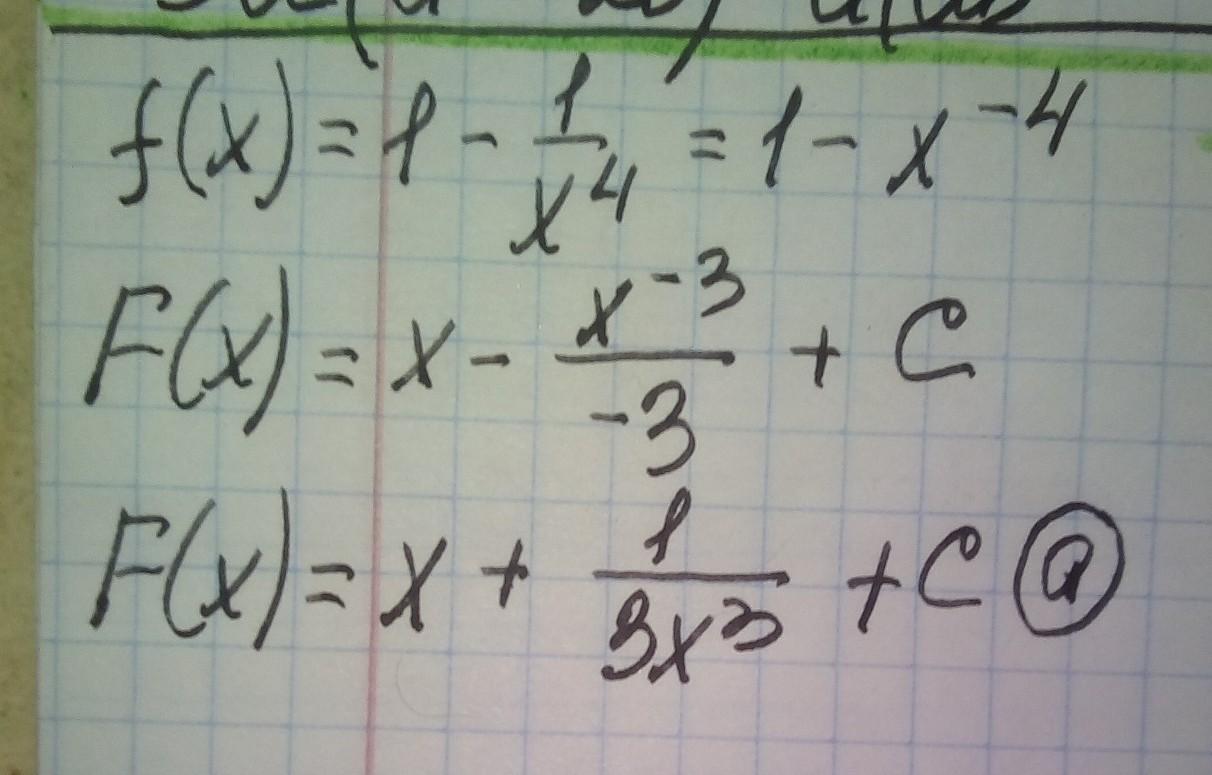 f(x) = 1 - 1/x^4 = 1 - x^-4
F(x) = x - x^-3/-3 + C
F(x) = x + 1/3x^3 + C ⓐ